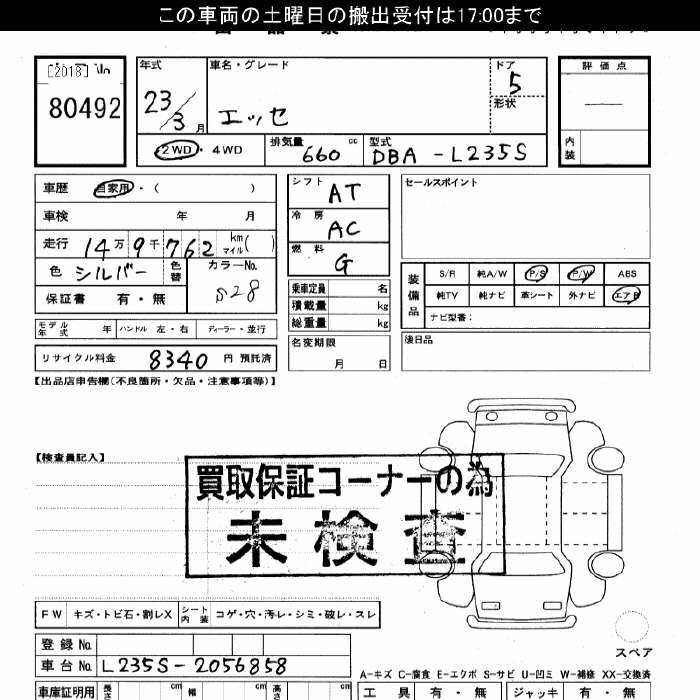 この車両の土曜日の搬出受付は17:00まで
[2018]
80492
年式 23/3月
車名・グレード エッセ
ドア 5
形状
評価点
内装
2WD・4WD
排気量 660 cc
型式 DBA-L235S
車歴 自家用・( )
シフト AT
セールスポイント
車検 年 月
冷房 AC
走行 14万9千762 km マイル( )
燃料 G
色 シルバー 色替
カラーNo. S28
保証書 有・無
乗車定員 名
積載量 kg
総重量 kg
装備品 S/R 純A/W P/S P/W ABS
純TV 純ナビ 革シート 外ナビ エアB
ナビ型番:
モデル年式 年 ハンドル 左・右 ディーラー・並行
名変期限 月 日
後日品
リサイクル料金 8340 円 預託済
【出品店申告欄(不良箇所・欠品・注意事項等)】
【検査員記入】
買取保証コーナーの為
未検査
FW キズ・トビ石・割レX シート内装 コゲ・穴・汚レ・シミ・破レ・スレ
登録No.
車台No. L235S-2056858
スペア
A-キズ C-腐食 E-エクボ S-サビ U-凹ミ W-補修 XX-交換済
車庫証明用 長さ cm 幅 cm 高さ cm
工具 有・無 ジャッキ 有・無